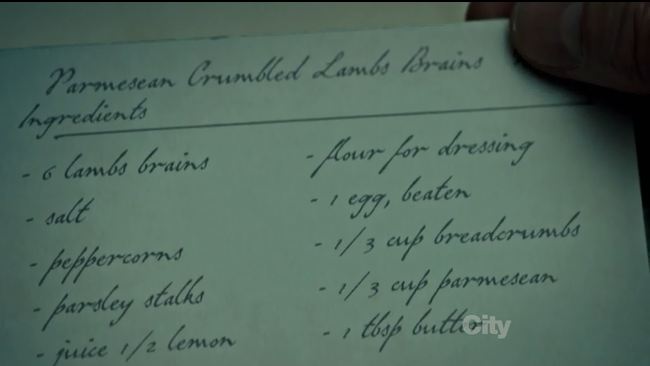 Parmesean Crumbled Lambs Brains
Ingredients
- 6 lambs brains
- salt
- peppercorns
- parsley stalks
- juice 1/2 lemon
- flour for dressing
- 1 egg, beaten
- 1/3 cup breadcrumbs
- 1/3 cup parmesean
- 1 tbsp butter
City